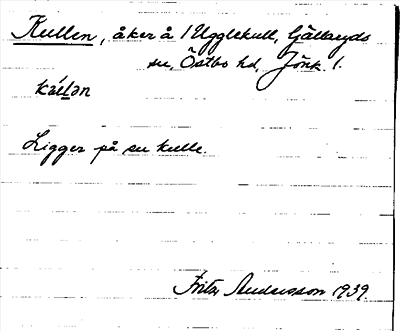 Kullen, åker å 1 Ugglekull, Gällaryds
sn, Östbo hd, Jönk. l.
kúl̲ən
Ligger på en kulle.
Fritz Andersson 1939.